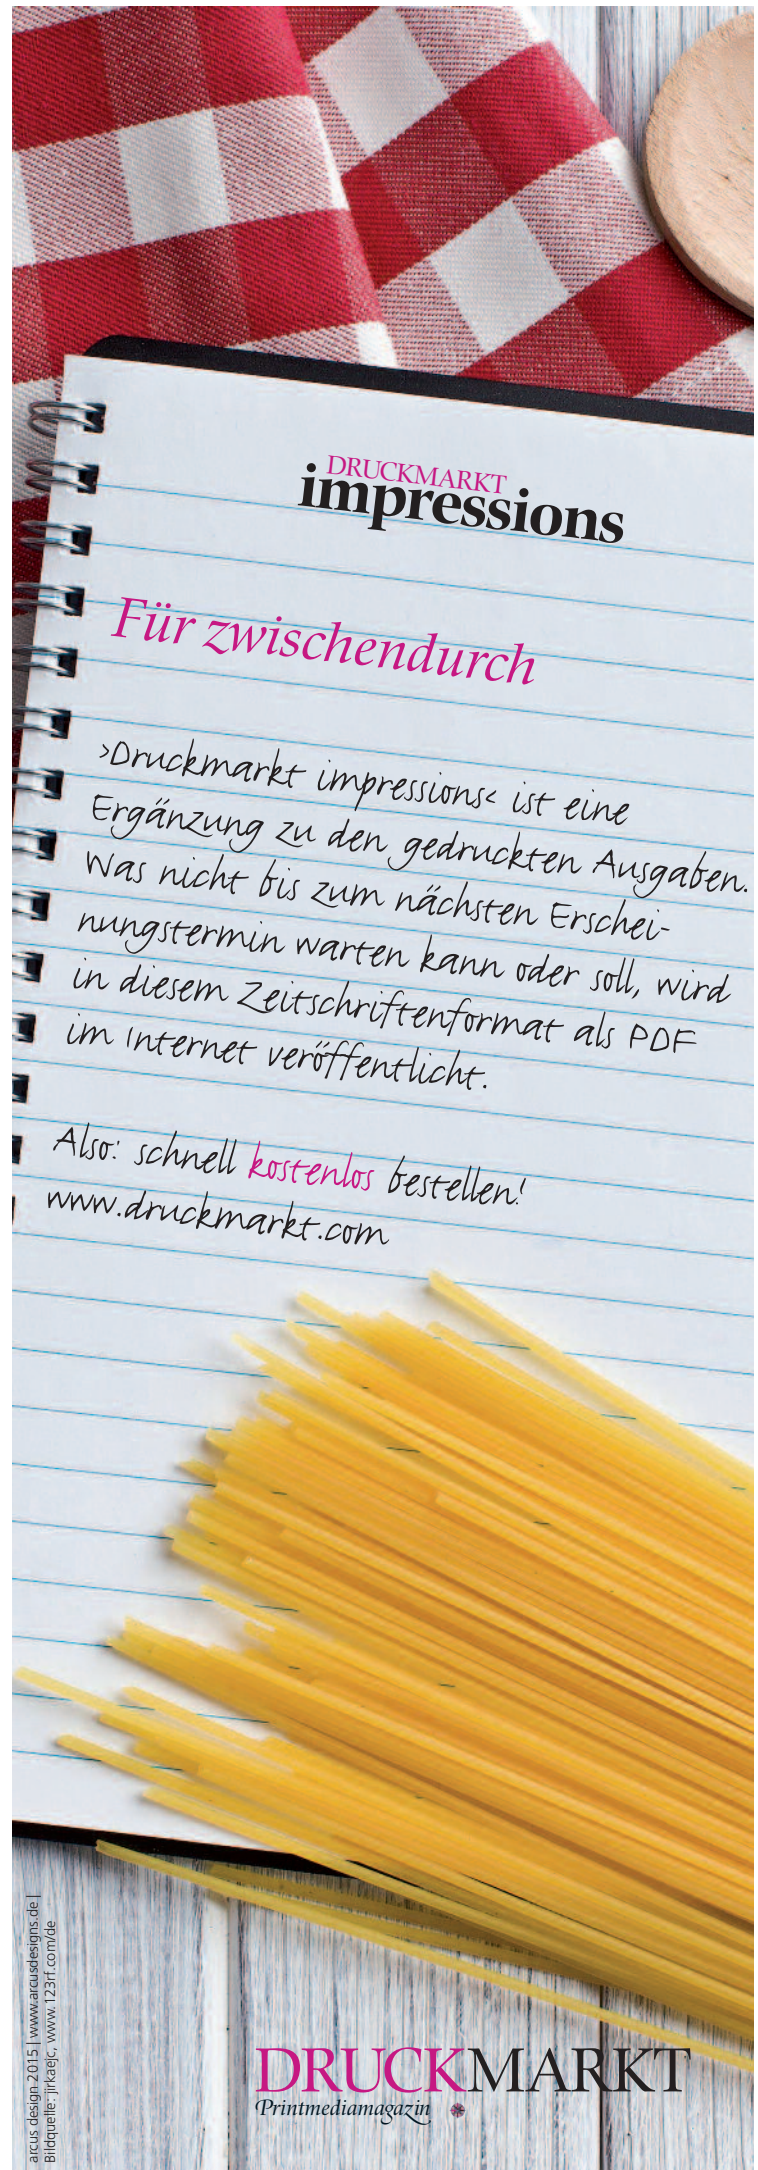 DRUCKMARKT
impressions
Für zwischendurch
›Druckmarkt impressions‹ ist eine
Ergänzung zu den gedruckten Ausgaben.
Was nicht bis zum nächsten Erschei-
nungstermin warten kann oder soll, wird
in diesem Zeitschriftenformat als PDF
im Internet veröffentlicht.
Also: schnell kostenlos bestellen!
www.druckmarkt.com
arcus design 2015 | www.arcusdesigns.de |
Bildquelle: jirkaejc, www.123rf.com/de
DRUCKMARKT
Printmediamagazin